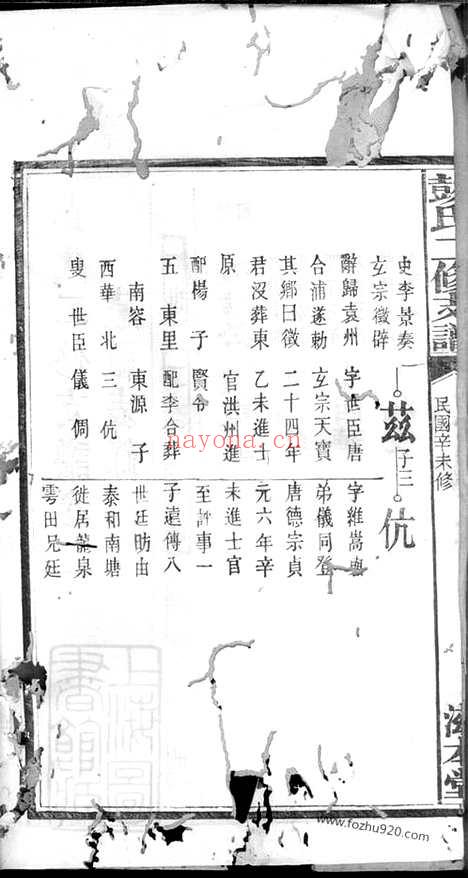 彭氏二修支譜
民國辛未修
本堂
史李景奏
玄宗徵辟
辭歸袁州
合浦遂勅
其鄉曰徵
君沒葬東
原
配楊 子
五 東里
南容
西華 北
叟 世臣
茲 子三
字世臣唐
玄宗天寶
二十四年
乙未進士
官洪州進
賢令
配李合葬
東源 子
三 伉
儀 倜
伉
字維嵩與
弟儀同登
唐德宗貞
元六年辛
未進士官
至評事一
子遠傳八
世廷昉由
泰和南塘
徙居龍泉
雲田兄廷
上海圖書館藏
nayona.cn
www.fozhu920.com